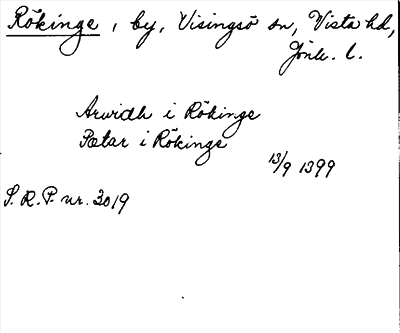 Rökinge, by, Visingsö sn, Vista hd,
Jönk. l.
Arwidh i Rökinge
Pætar i Rökinge
13/9 1399
S.R.P. nr. 3019